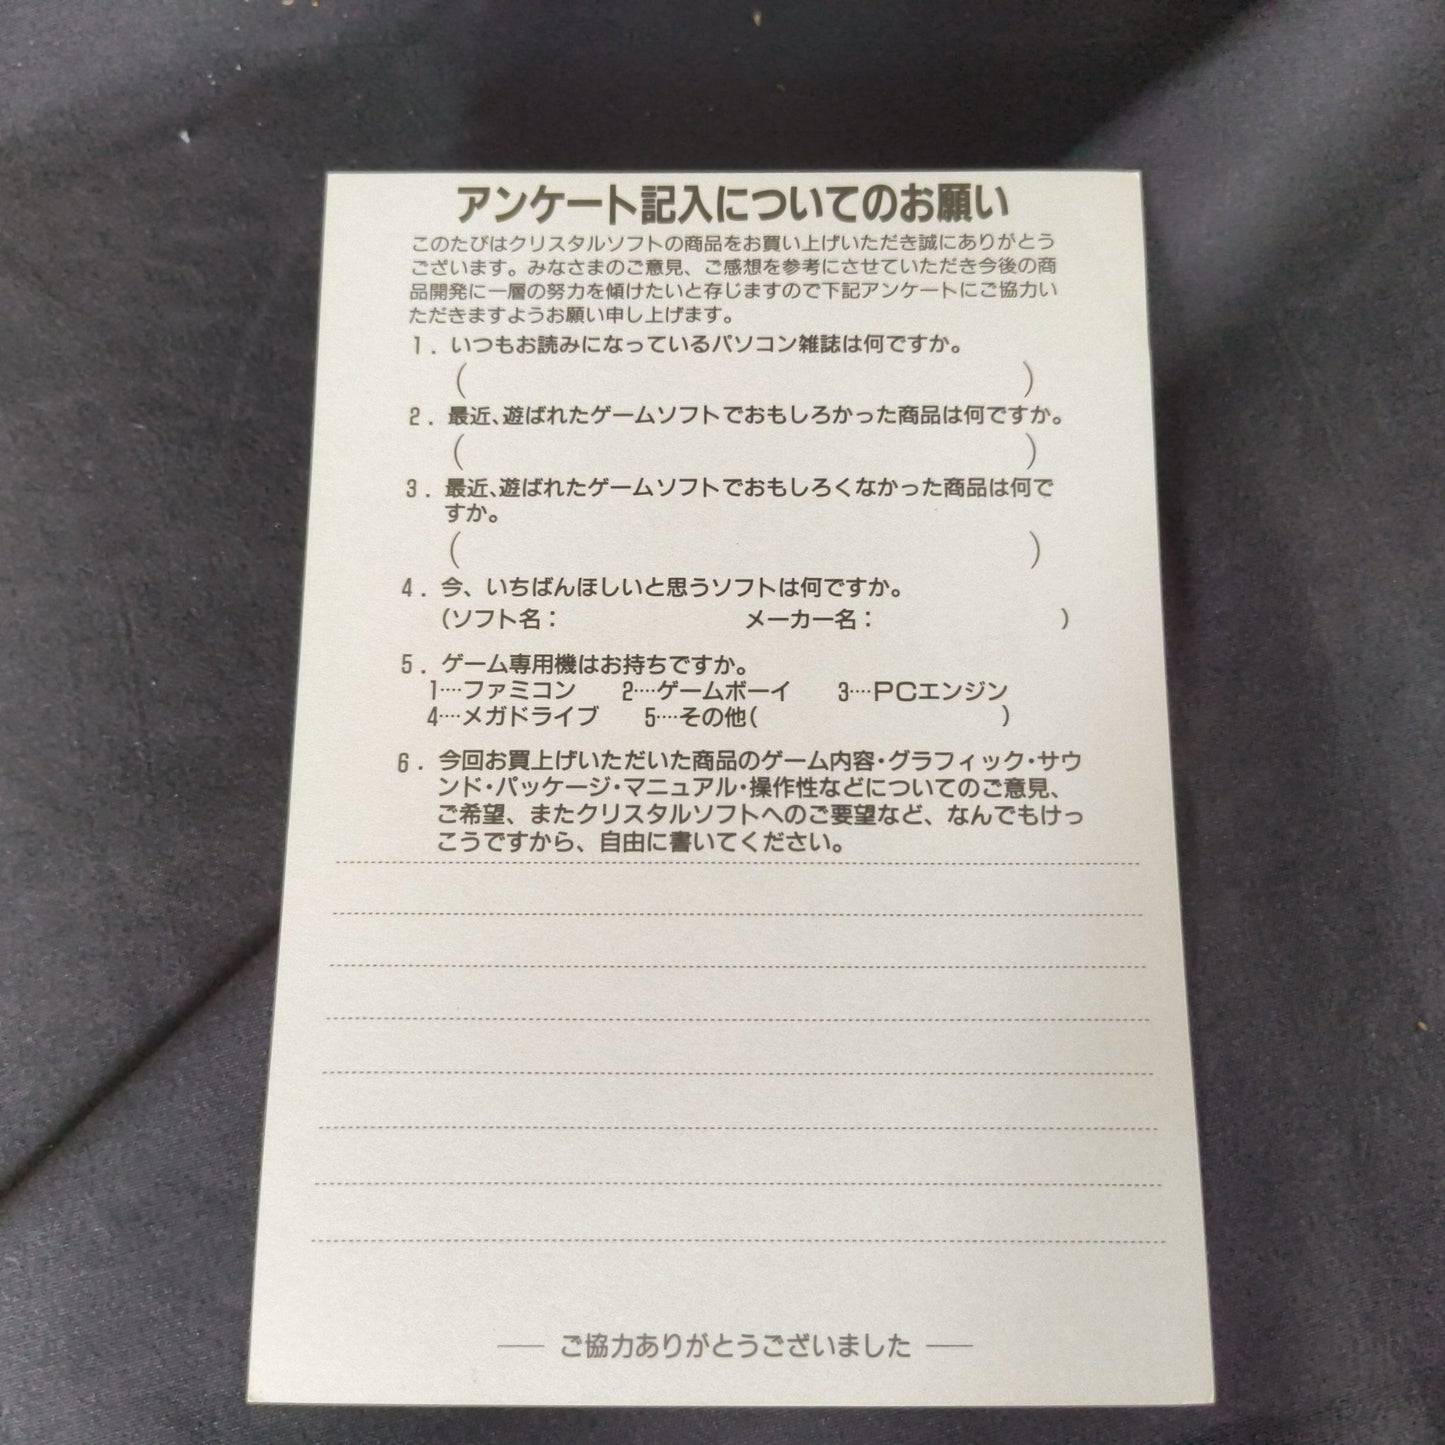 アンケート記入についてのお願い
このたびはクリスタルソフトの商品をお買い上げいただき誠にありがとう
ございます。みなさまのご意見、ご感想を参考にさせていただき今後の商
品開発に一層の努力を傾けたいと存じますので下記アンケートにご協力い
ただきますようお願い申し上げます。
1. いつもお読みになっているパソコン雑誌は何ですか。
( )
2. 最近、遊ばれたゲームソフトでおもしろかった商品は何ですか。
( )
3. 最近、遊ばれたゲームソフトでおもしろくなかった商品は何で
すか。
( )
4. 今、いちばんほしいと思うソフトは何ですか。
(ソフト名: メーカー名: )
5. ゲーム専用機はお持ちですか。
1‥‥ファミコン 2‥‥ゲームボーイ 3‥‥PCエンジン
4‥‥メガドライブ 5‥‥その他( )
6. 今回お買上げいただいた商品のゲーム内容・グラフィック・サウ
ンド・パッケージ・マニュアル・操作性などについてのご意見、
ご希望、またクリスタルソフトへのご要望など、なんでもけっ
こうですから、自由に書いてください。
── ご協力ありがとうございました ──